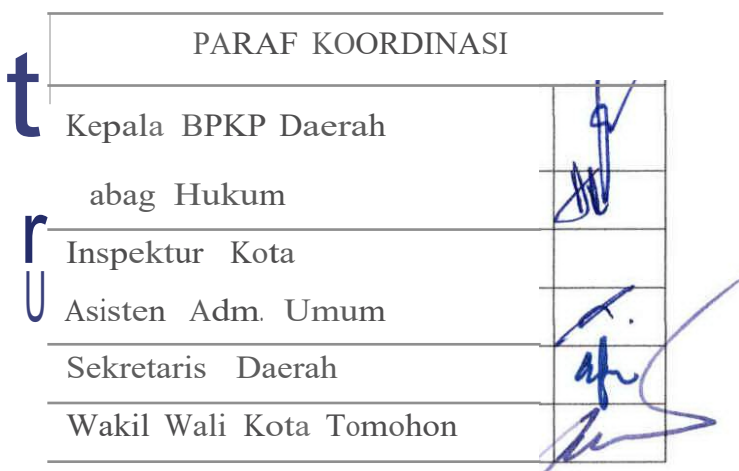 PARAF KOORDINASI
t
Kepala BPKP Daerah
abag Hukum
r
Inspektur Kota
U
Asisten Adm. Umum
Sekretaris Daerah
Wakil Wali Kota Tomohon